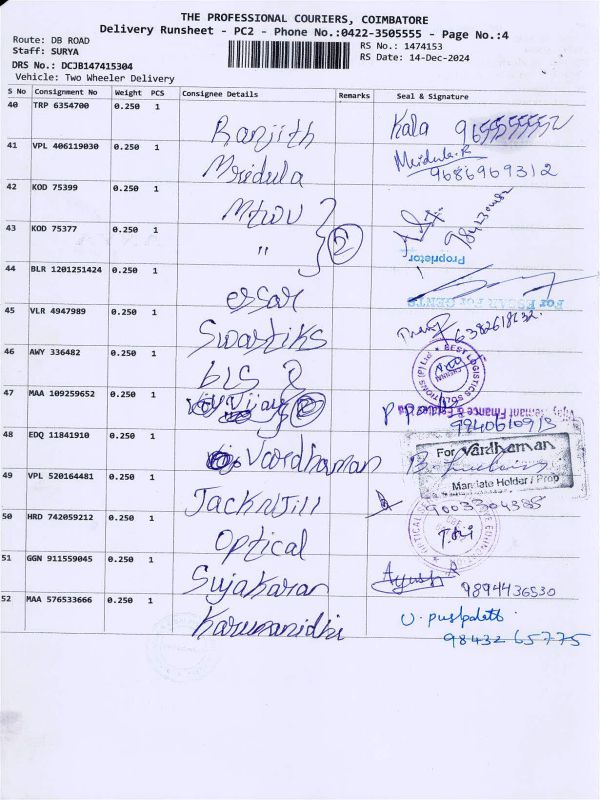 THE PROFESSIONAL COURIERS, COIMBATORE
Delivery Runsheet - PC2 - Phone No.:0422-3505555 - Page No.:4
Route: DB ROAD
Staff: SURYA
RS No.: 1474153
RS Date: 14-Dec-2024
DRS No.: DCJB147415304
Vehicle: Two Wheeler Delivery
S No Consignment No Weight PCS Consignee Details Remarks Seal & Signature
40 TRP 6354700 0.250 1 Ranjith Kala
41 VPL 406119030 0.250 1 Mridula Mridula.R 9686969312
42 KOD 75399 0.250 1
43 KOD 75377 0.250 1 " 2
Proprietor
44 BLR 1201251424 0.250 1 essar
For ESSAR For GENTS
45 VLR 4947989 0.250 1 Swastiks 6382618132
46 AWY 336482 0.250 1 bls
BEST LOGISTICS
47 MAA 109259652 0.250 1 Vijay 2
Finance
48 EDQ 11841910 0.250 1 Vardhaman
For Vardhaman
Mandate Holder / Prop
49 VPL 520164481 0.250 1 Jack n Jill 9003304385
50 HRD 742059212 0.250 1 Optical
51 GGN 911559045 0.250 1 Sujakaran Ayush R 9894436530
52 MAA 576533666 0.250 1 Karunanidhi
98432 65775